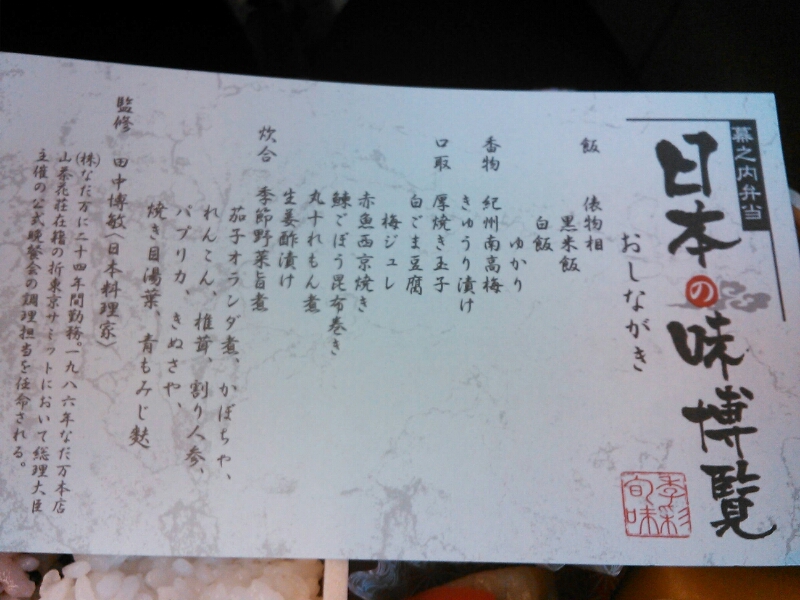 幕之内弁当
日本の味博覧
季彩旬味
おしながき
飯 俵物相
黒米飯
白飯
ゆかり
香物 紀州南高梅
きゅうり漬け
口取 厚焼き玉子
白ごま豆腐
梅ジュレ
赤魚西京焼き
鰊ごぼう昆布巻き
丸十れもん煮
生姜酢漬け
炊合 季節野菜旨煮
茄子オランダ煮、かぼちゃ、
れんこん、椎茸、割り人参、
パプリカ、きぬさや、
焼き目湯葉、青もみじ麩
監修 田中博敏(日本料理家)
(株)なだ万に二十四年間勤務。一九八六年なだ万本店
山茶花荘在籍の折東京サミットにおいて総理大臣
主催の公式晩餐会の調理担当を任命される。